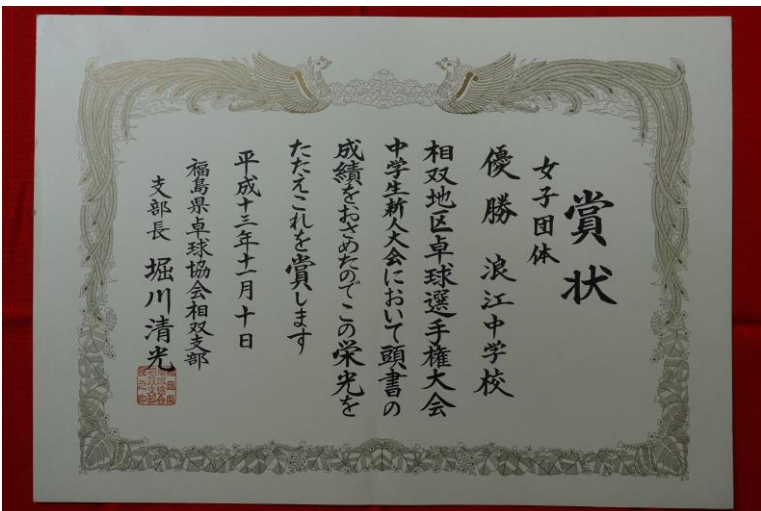 賞状
女子団体
優勝 浪江中学校
相双地区卓球選手権大会
中学生新人大会において頭書の
成績をおさめたのでこの栄光を
たたえこれを賞します
平成十三年十一月十日
福島県卓球協会相双支部
支部長 堀川清光